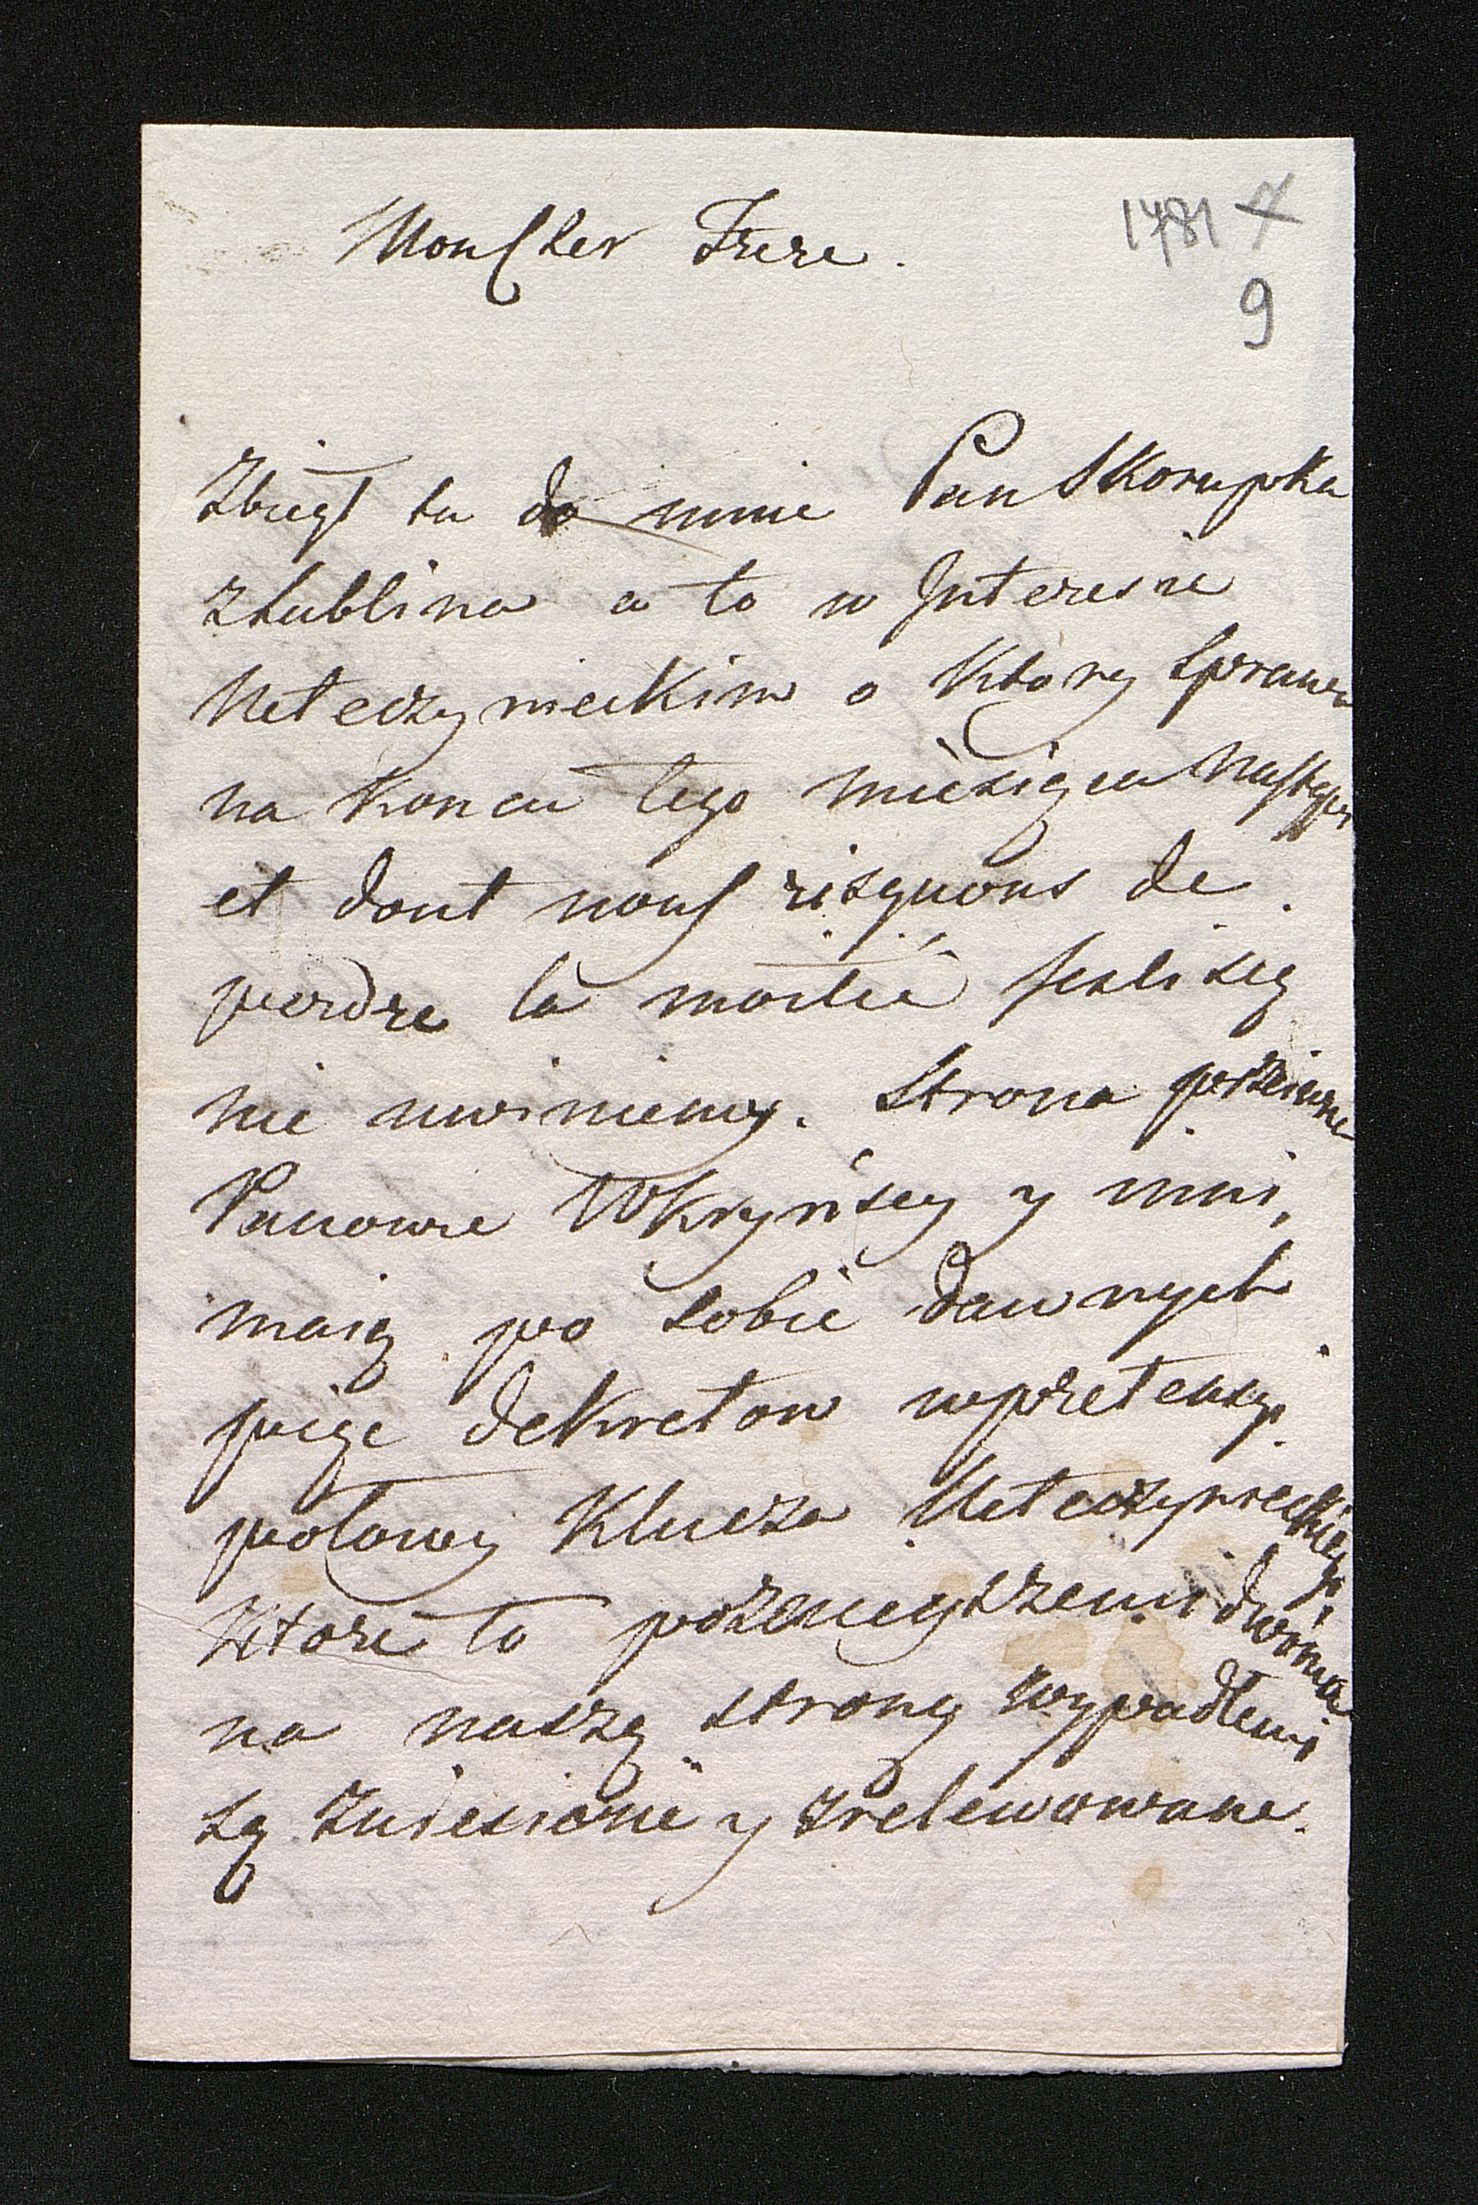 1781 7
9
Mon Cher Frere.
Zbiegł tu do mnie Pan Skorupka
z Lublina a to w Jnteresie
Meteczynieckim o ktory sprawa
na koncu tego miesiąca nastąpi
et dont nous risquons de
perdre la moitié jesli się
nie uwiniemy. Strona przeciwna
Panowie Wkryńscy y inni,
maią po sobie dawnych
pięc dekretow w pretensyi
połowy Klucza Meteczynieckiego,
ktore to poznieyszemi dwoma
na naszą stronę wypadłemi
są zniesione y zrelewowane.